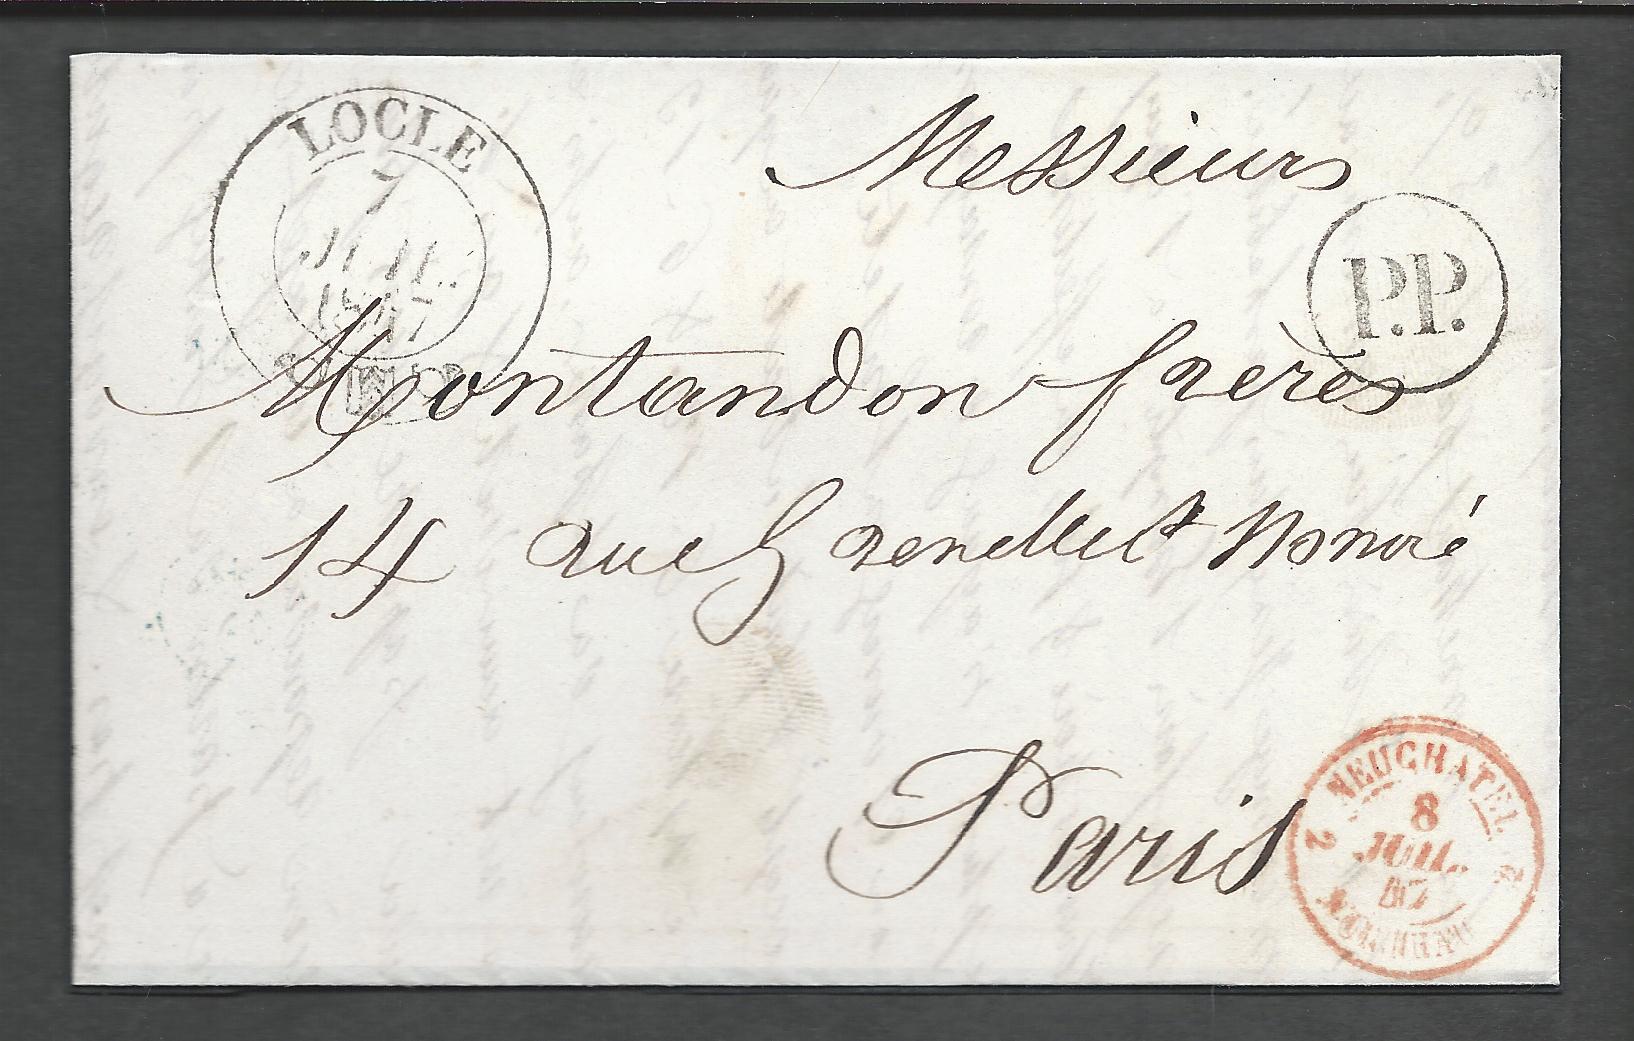 LOCLE
7
JUIL.
1847
SUISSE
Messieurs
P.P.
Montandon frères
14 rue Grenelle St Honoré
Paris
2 NEUCHATEL 2
8
JUIL.
47
PONTARLIER